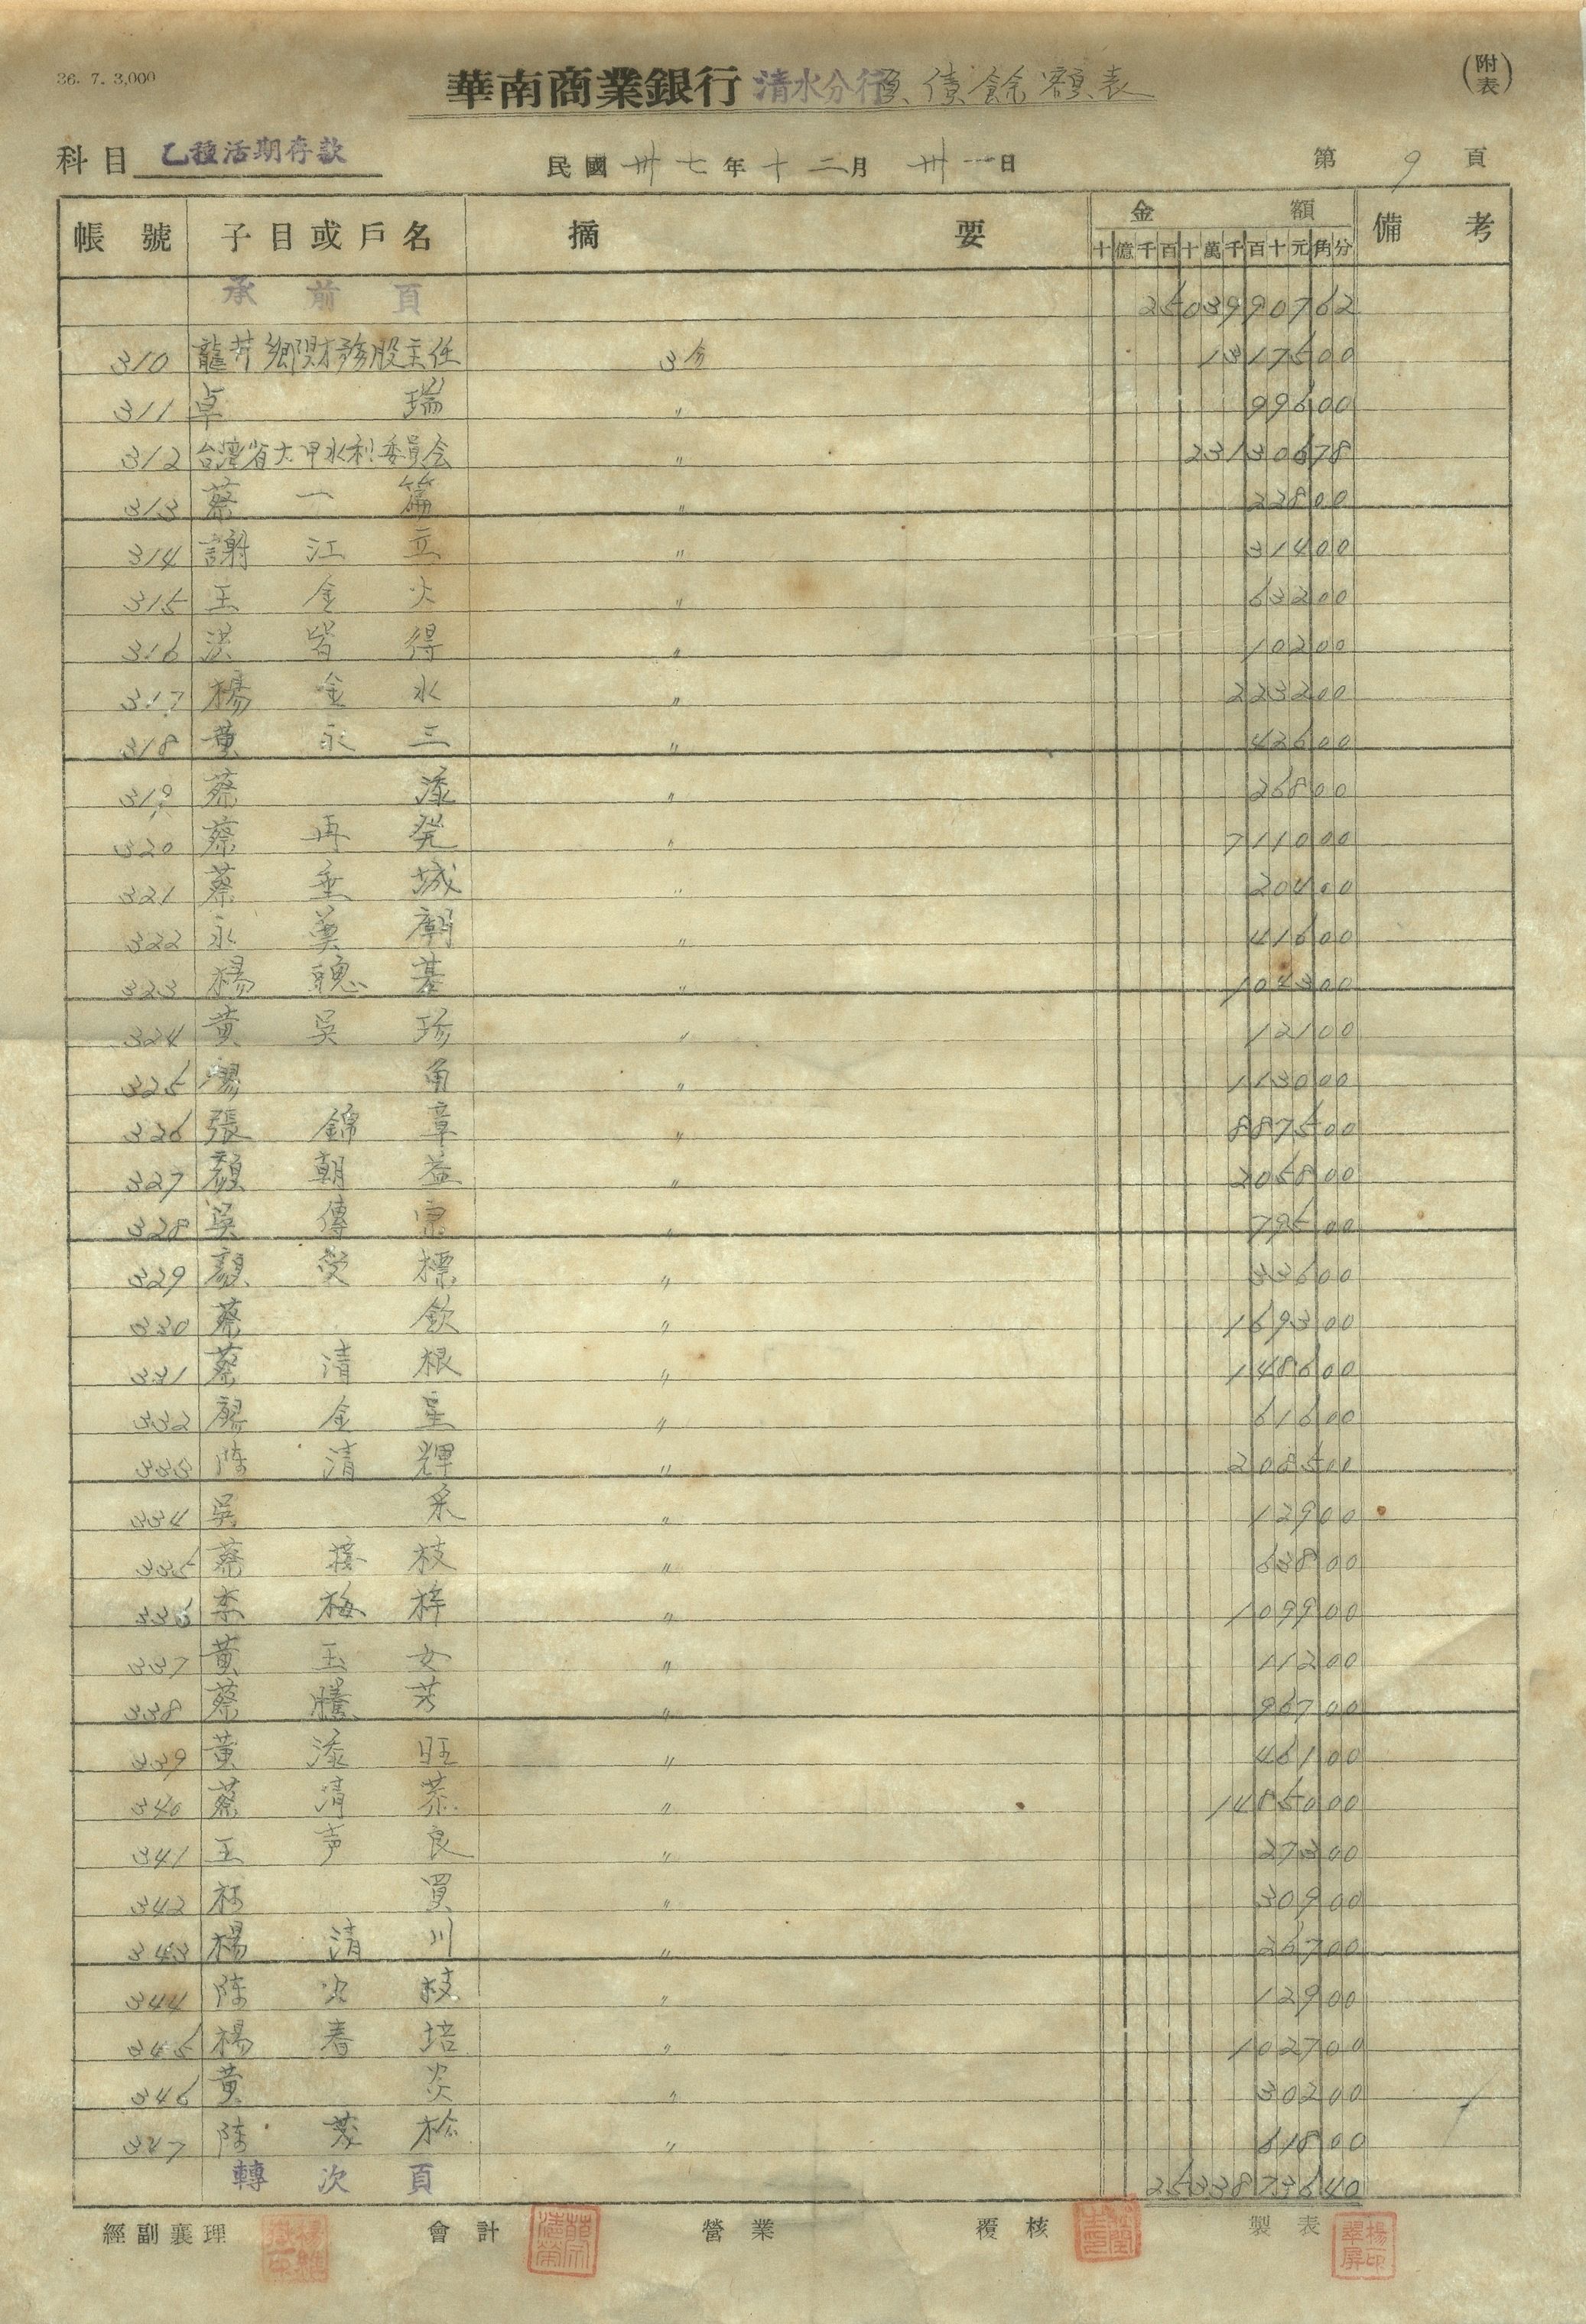 36. 7. 3,000
華南商業銀行 清水分行 負債餘額表 (附表)
科目 乙種活期存款 民國卅七年十二月卅一日 第9頁
帳號 子目或戶名 摘要 金額 備考
十億千百十萬千百十元角分
承前頁 2503990762
310 龍井鄉財務股主任 3分 1317500
311 卓瑞 〃 99600
312 台灣省大甲水利委員会 〃 23130678
313 蔡一篇 〃 22800
314 謝江立 〃 31400
315 王金火 〃 63200
316 洪皆得 〃 10200
317 楊金水 〃 223200
318 黃永三 〃 42600
319 蔡添 〃 26800
320 蔡再発 〃 711000
321 蔡垂城 〃 20400
322 永奠廟 〃 41600
323 楊聰基 〃 104300
324 黃吳珍 〃 12100
325 楊角 〃 113000
326 張錦章 〃 887500
327 顏朝益 〃 205800
328 吳傳 〃 79500
329 顏受標 〃 33600
330 蔡欽 〃 169300
331 蔡清根 〃 148600
332 廖金星 〃 61600
333 陳清輝 〃 208500
334 吳 〃 12900
335 蔡接枝 〃 63800
336 李梅梓 〃 109900
337 黃玉女 〃 11200
338 蔡騰芳 〃 96700
339 黃添旺 〃 46100
340 蔡清恭 〃 1485000
341 王声良 〃 27300
342 柯買 〃 30900
343 楊清川 〃 26700
344 陳次枝 〃 12900
345 楊春培 〃 102700
346 黃炎 〃 30200
347 陳茂松 〃 61800
轉次頁 2533873640
經副襄理 會計 營業 覆核 製表